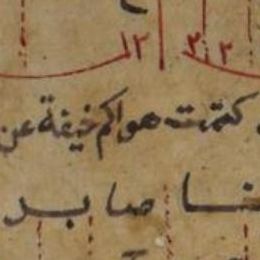 ١٢ ٣١٢
كتمت هواكم خيفة عن
ـنا صابر